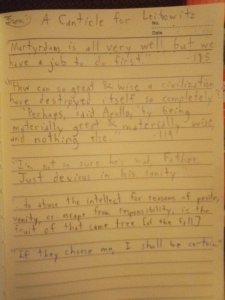 From: A Canticle for Leibowitz
No.
Date
"Martyrdom is all very well but we
have a job to do first"
"How can so great & wise a civilization
have destroyed itself so completely
"Perhaps, said Apollo, "by being
materially great & materially wise
and nothing else"
"I'm not so sure he's mad, Father.
Just devious in his sanity
to abuse the intellect for reasons of pride,
vanity, or escape from responsibility, is the
fruit of that same tree [of the fall]
"If they choose me, I shall be certain"